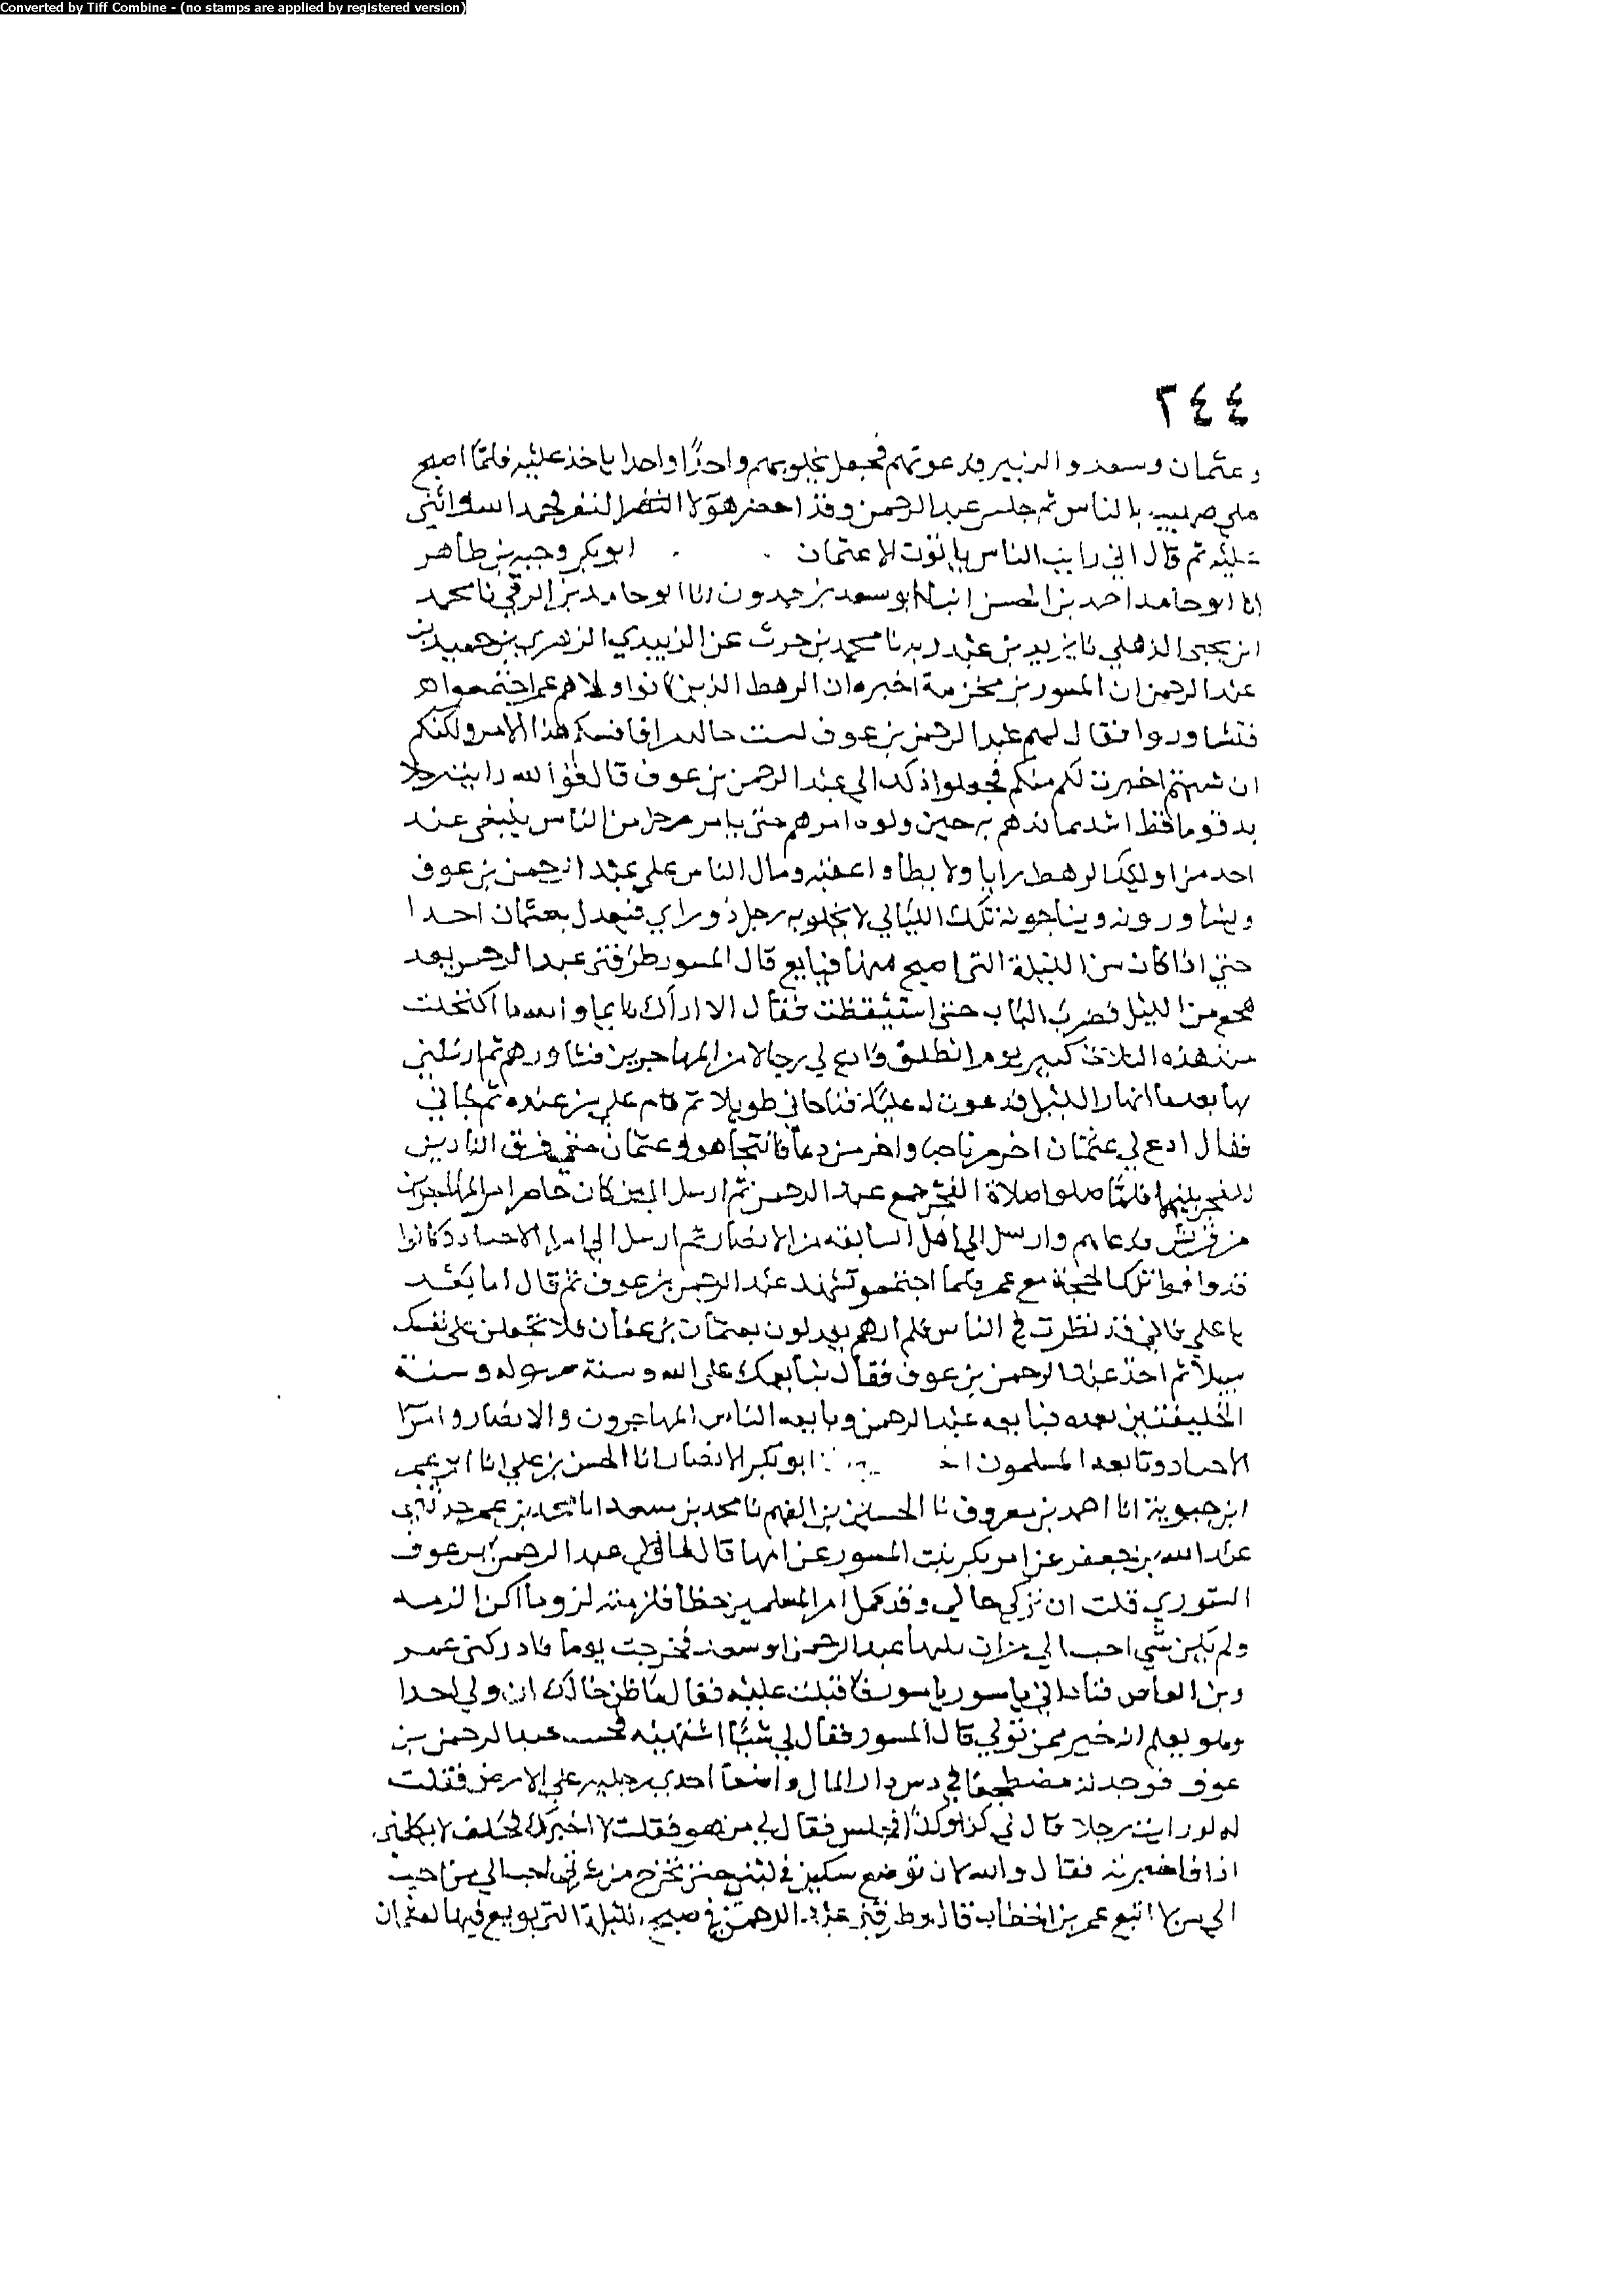 Converted by Tiff Combine - (no stamps are applied by registered version)
٢٤٤
وعثمان وسعد والزبير فدعوتهم فجعل يخلو بهم واحدا واحدا ياخذ عليه فلما اصبح
صلى صهيب بالناس ثم جلس عبد الرحمن وقد احضر هولا النفر فحمد الله واثنى
عليه ثم قال اني رايت الناس يابون الا عثمان ابو بكر وجيه بن طاهر
انا ابو حامد احمد بن الحسن انبا ابو سعد بن حمدون انا ابو حامد بن الرقي نا محمد
ابن يحيى الذهلي نا يزيد بن عبد ربه نا محمد بن حرب عن الزبيدي الزهري بن حميد بن
عبد الرحمن ان المسور بن مخرمة اخبره ان الرهط الذين كانوا ولاهم عمر اجتمعوا
فتشاوروا فقال لهم عبد الرحمن بن عوف لست هذا الامر ولكنكم
ان شيتم اخترت لكم منكم فجعلوا ذلك الى عبد الرحمن بن عوف قال فوالله ما رايت رجلا
بد قوما قط اشد مما بدهم به حين ولوه امرهم حتى ما من رجل من الناس ينبغي عند
احد من اوليك الرهط رايا ولا يطا واعقبه ومال الناس على عبد الرحمن بن عوف
ويشاورونه ويناجونه تلك الليالي لا يخلو به رجل ذو راي فيعدل بعثمان احدا
حتى اذا كان من الليلة التي اصبح منها فبايع قال المسور طرقني عبد الرحمن بعد
هجع من الليل فضرب الباب حتى استيقظت فقال الا اراك نايما والله ما اكتحلت
منذ هذه الثلاث كبير يوم انطلق فادع لي رجالا من المهاجرين فشاورهم ثم ارسلني
بعدما ابهار الليل فدعوت له عليا فناجاه طويلا ثم قام علي من عنده ثم
فقال ادع لي عثمان اخر من ناجا واخر من دعا فانتجا هو وعثمان حتى فرق التاذين
للفجر بينهما فلما صلوا صلاة الفجر جمع عبد الرحمن ثم ارسل الى من كان حاضرا من المهاجرين
من قريش فدعاهم وارسل الى اهل السابقة من الانصار ثم ارسل الى امرا الاجناد وكانوا
قد وافوا تلك الحجة مع عمر فلما اجتمعوا تشهد عبد الرحمن بن عوف ثم قال اما بعد
يا علي فاني قد نظرت في الناس فلم ارهم يعدلون بعثمان بن عفان فلا تجعلن على نفسك
سبيلا ثم اخذ عبد الرحمن بن عوف فقال نبايعك على الله وسنة رسوله وسنة
الخليفتين بعده فبايعه عبد الرحمن وبايعه الناس المهاجرون والانصار وامرا
الاجناد وتابعه المسلمون ابو بكر الانصار انا الحسن بن علي انا ابو عمر
ابن حيوية انا احمد بن معروف نا الحسين بن الفهم نا محمد بن سعد انا محمد بن عمر حدثني
عبد الله بن جعفر عن ام بكر بنت المسور عن ابيها قال لما ولي عبد الرحمن بن عوف
الشورى قلت ان تركي حالي وقد كمل امر المسلمين خطا فلزمته لزوما لم اكن الزمه
ولم يكن شي احب الي من ان يليها عبد الرحمن او سعد فخرجت يوما فادركني عمرو
وبن العاص فناداني يا مسور يا مسور فاقبلت عليه فقال ما ظن خالك ان ولي احدا
وهو يعلم انه خير ممن تولي قال المسور فقال لي شيا اشتهيته فجيت عبد الرحمن بن
عوف فوجدته مضطجعا في دس دار المال واضعا احدى رجليه على الارض فقلت
له لو رايت رجلا قال لي كذا وكذا فجلس فقال لي من هو فقلت لا اخبرك فحلف لا يكلمني
اذا فاخبرته فقال والله لان توضع سكين في لبتي حتى تخرج من احب الي من
الى من لا اتبع عمر بن الخطاب قال وطرقني عبد الرحمن في صبيحة الليلة التي بويع فيها لعثمان